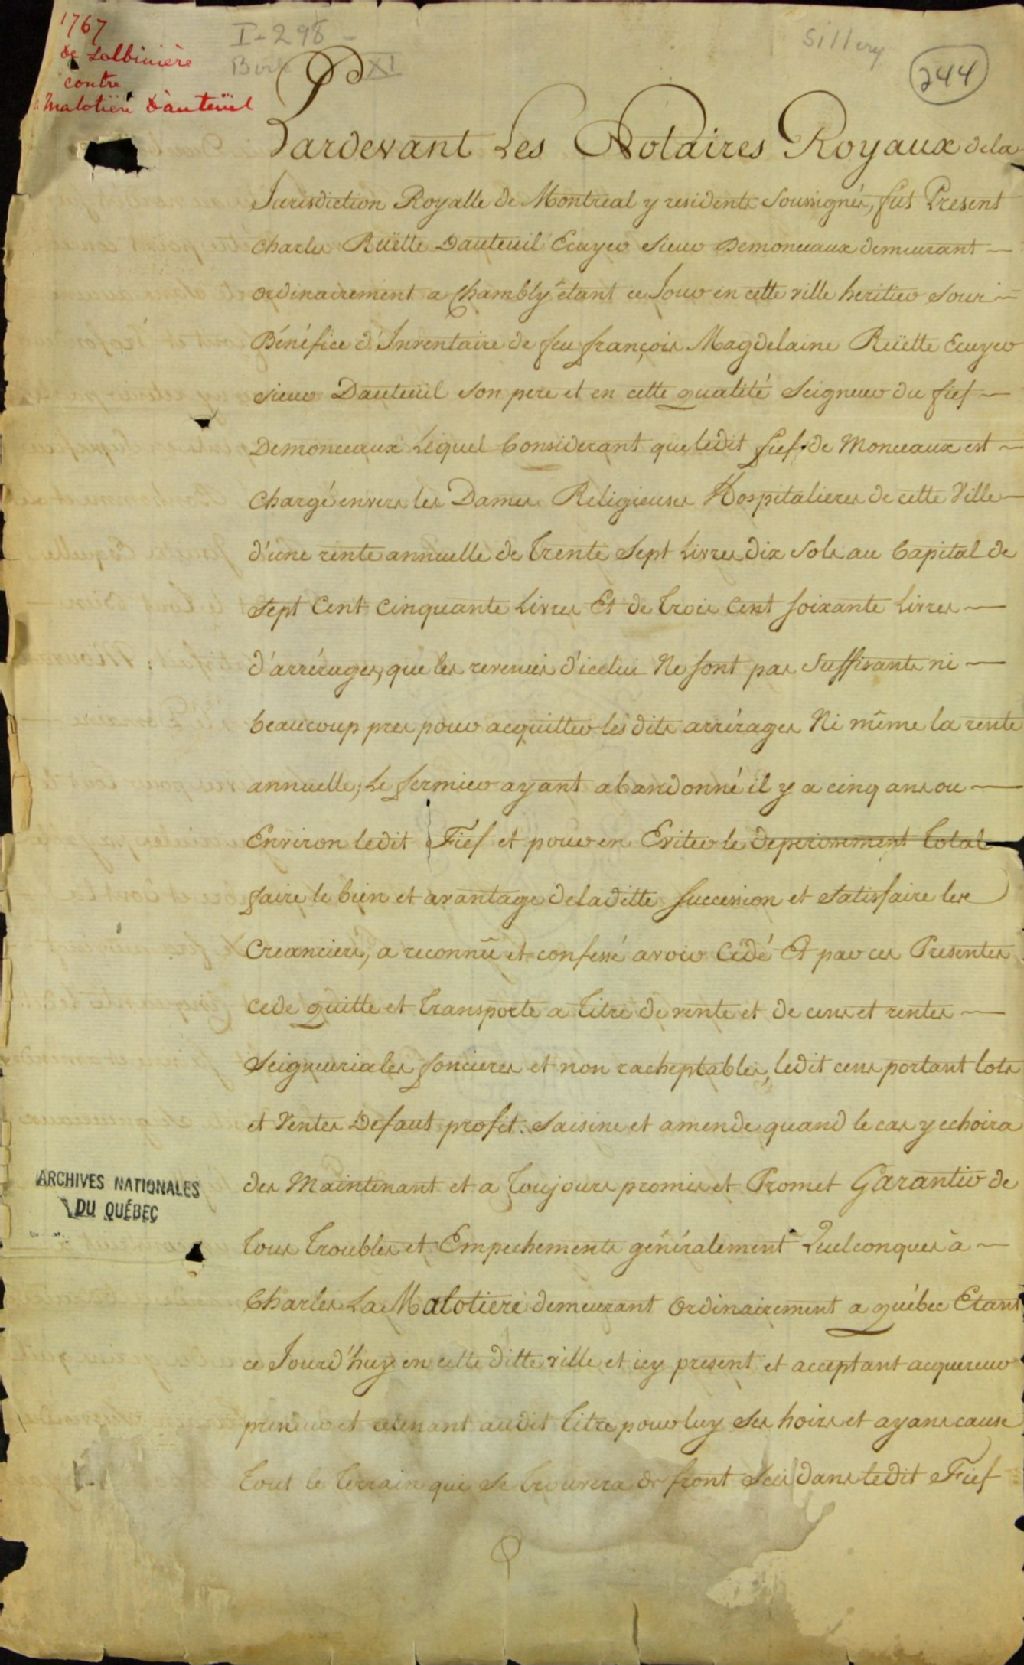 1767
de Lolbinière
contre
Malotière Dauteüil
I-298-
XI
Sillery
244
Pardevant Les Notaires Royaux dela
Jurisdiction Royalle de Montreal y residents Soussignés, fut Present
Charles Rüette Dauteuil Ecuyer Sieur Demonceaux demeurant
ordinairement a Chambly étant ce Jour en cette ville heritier Sous
Bénéfice d'Inventaire de feu françois Magdelaine Rüette Ecuyer
sieur Dauteüil son pere et en cette qualité Seigneur du fief
Demonceaux Lequel Considerant que ledit fief de Monceaux est
Chargé envers les Dames Religieuses Hospitalieres de cette Ville
d'une rente annuelle de Trente Sept Livres dix sols au Capital de
Sept Cent Cinquante Livres Et de Trois Cent soixante Livres
d'arrérages, que les revenus d'icelui Ne sont pas Suffisants ni
beaucoup pres pour acquitter les dits arrérages Ni même la rente
annuelle; Le fermier ayant abandonné il y a cinq ans ou
Environ ledit Fief et pour en Eviter le deperissement Total
faire le bien et avantage deladitte Succession et Satisfaire les
Creanciers, a reconnû et confessé avoir Cédé Et par ces Presentes
cede quitte et Transporte a Titre de rente et de cens et rentes
Seigneuriales foncieres et non racheptables, ledit cens portant lots
et Ventes Defaut profit. Saisine et amende quand le cas y echoira
des Maintenant et a Toujours promis et Promet Garantir de
Tous Troubles et Empechements généralement Quelconques à
Charles La Malotiere demeurant Ordinairement a québec Etant
ce Jourd'huy en cette ditte ville et icy present et acceptant acquereur
preneur et retenant audit Titre pour luy Ses hoirs et ayans cause
Tout le Terrain qui Se trouvera de front Seis dans ledit Fief
ARCHIVES NATIONALES
DU QUÉBEC